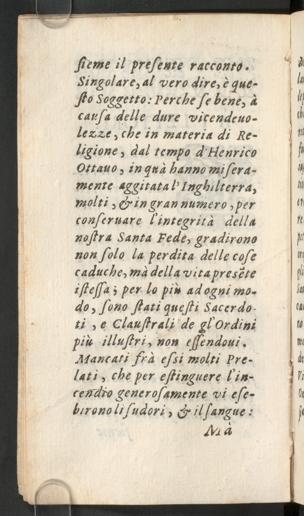 ſieme il preſente racconto.
Singolare, al vero dire, è que-
ſto Soggetto: Perche ſe bene, à
cauſa delle dure vicendeuo-
lezze, che in materia di Re-
ligione, dal tempo d'Henrico
Ottauo, in quà hanno miſera-
mente aggitata l'Inghilterra,
molti, & in gran numero, per
conſeruare l'integrità della
noſtra Santa Fede, gradirono
non ſolo la perdita delle coſe
caduche, mà della vita preſẽte
iſteſſa; per lo più ad ogni mo-
do, ſono ſtati queſti Sacerdo-
ti, e Clauſtrali de gl'Ordini
più illuſtri, non eſſendoui.
Mancati frà eſsi molti Pre-
lati, che per eſtinguere l'in-
cendio generoſamente vi eſe-
birono li ſudori, & il ſangue:
Mà